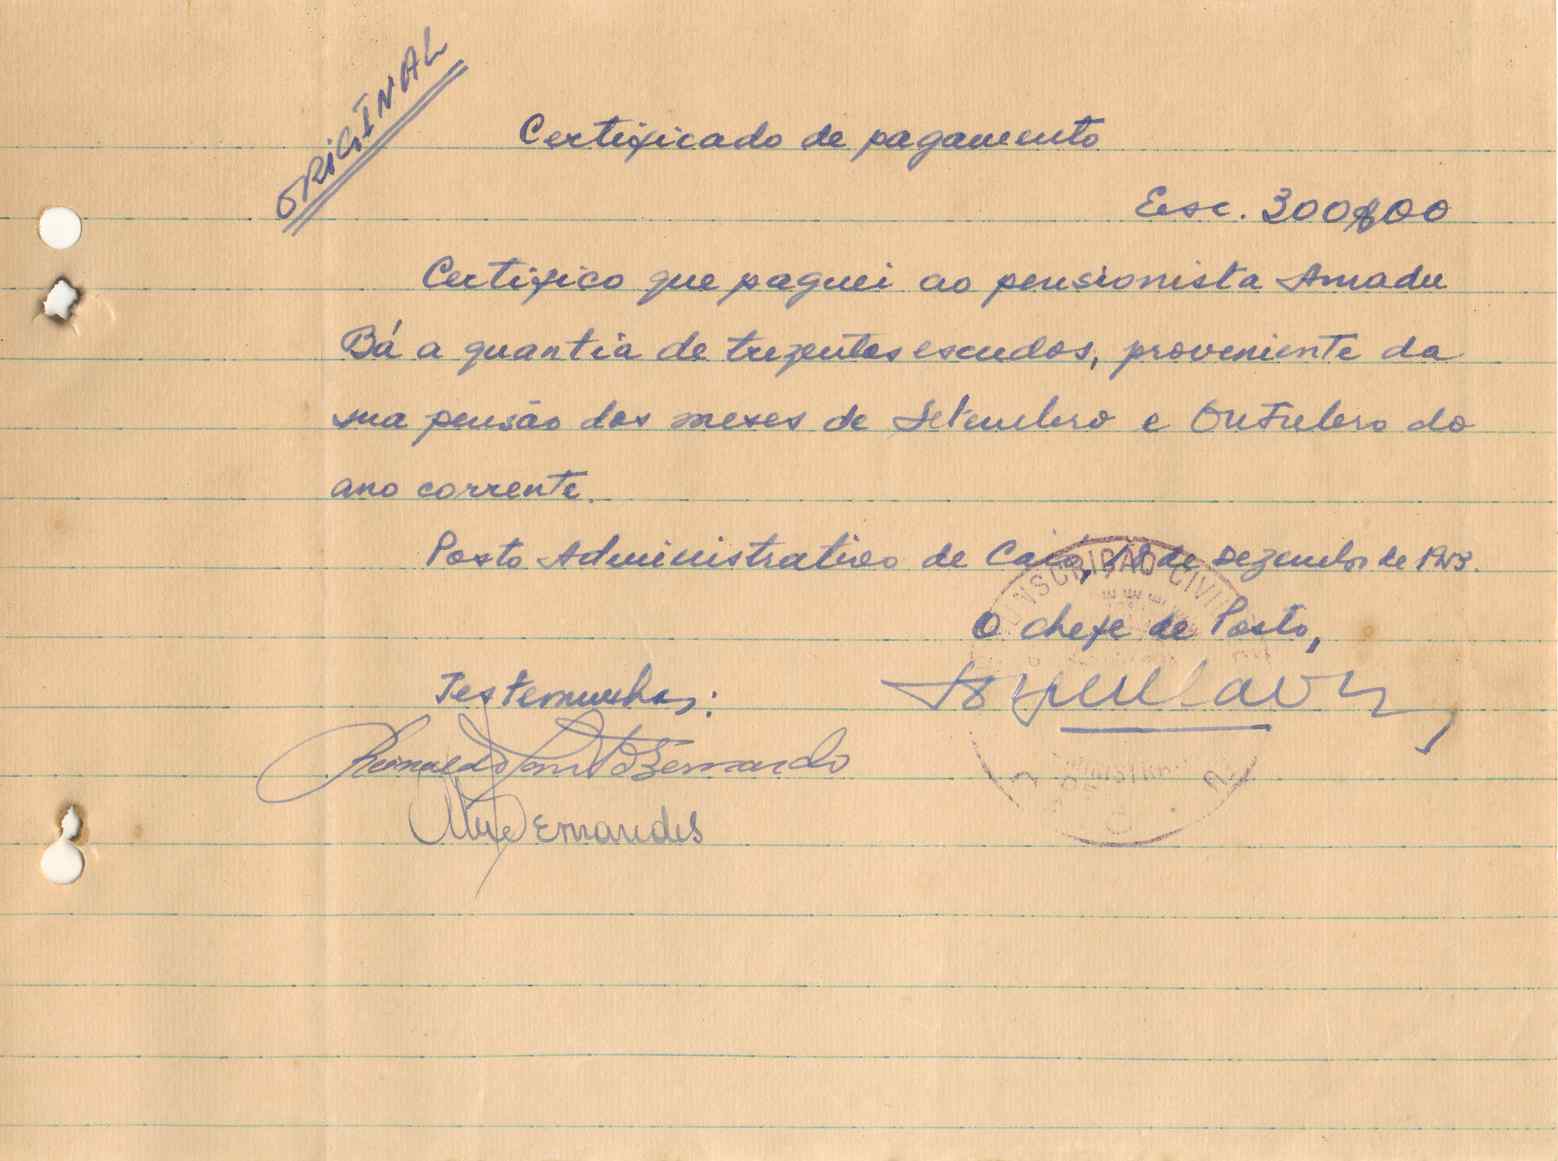 ORIGINAL
Certificado de pagamento
Esc. 300$00
Certifico que paguei ao pensionista Amadu
Bá a quantia de trezentos escudos, proveniente da
sua pensão dos meses de Setembro e Outubro do
ano corrente.
Posto Administrativo de Caió, de Dezembro de
O chefe de Posto,
Testemunhas:
Bernardo
Fernandes
CIRCUNSCRIÇÃO CIVIL